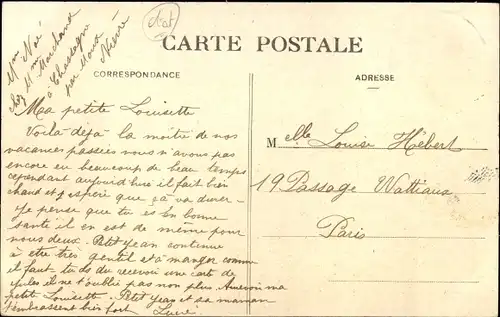 Mme Noé
chez Mme Marchand
à Chassagne
par Moux
Nièvre
CARTE POSTALE
CORRESPONDANCE
ADRESSE
Ma petite Louisette
Voilà déja la moitié de nos
vacances passées nous n'avons pas
encore eu beaucoup de beau temps
cependant aujourd'hui il fait bien
chaud et j'espère que ça va durer
Je pense que tu es en bonne
santé il en est de même pour
nous deux. Petit Jean continue
à être très gentil et à manger comme
il faut tu as du recevoir une carte de
Jules il ne t'oublie pas non plus. Au revoir ma
petite Louisette. Petit Jean et sa maman
t'embrassent bien fort
Melle Louise Hébert
19 Passage Wattiaux
Paris